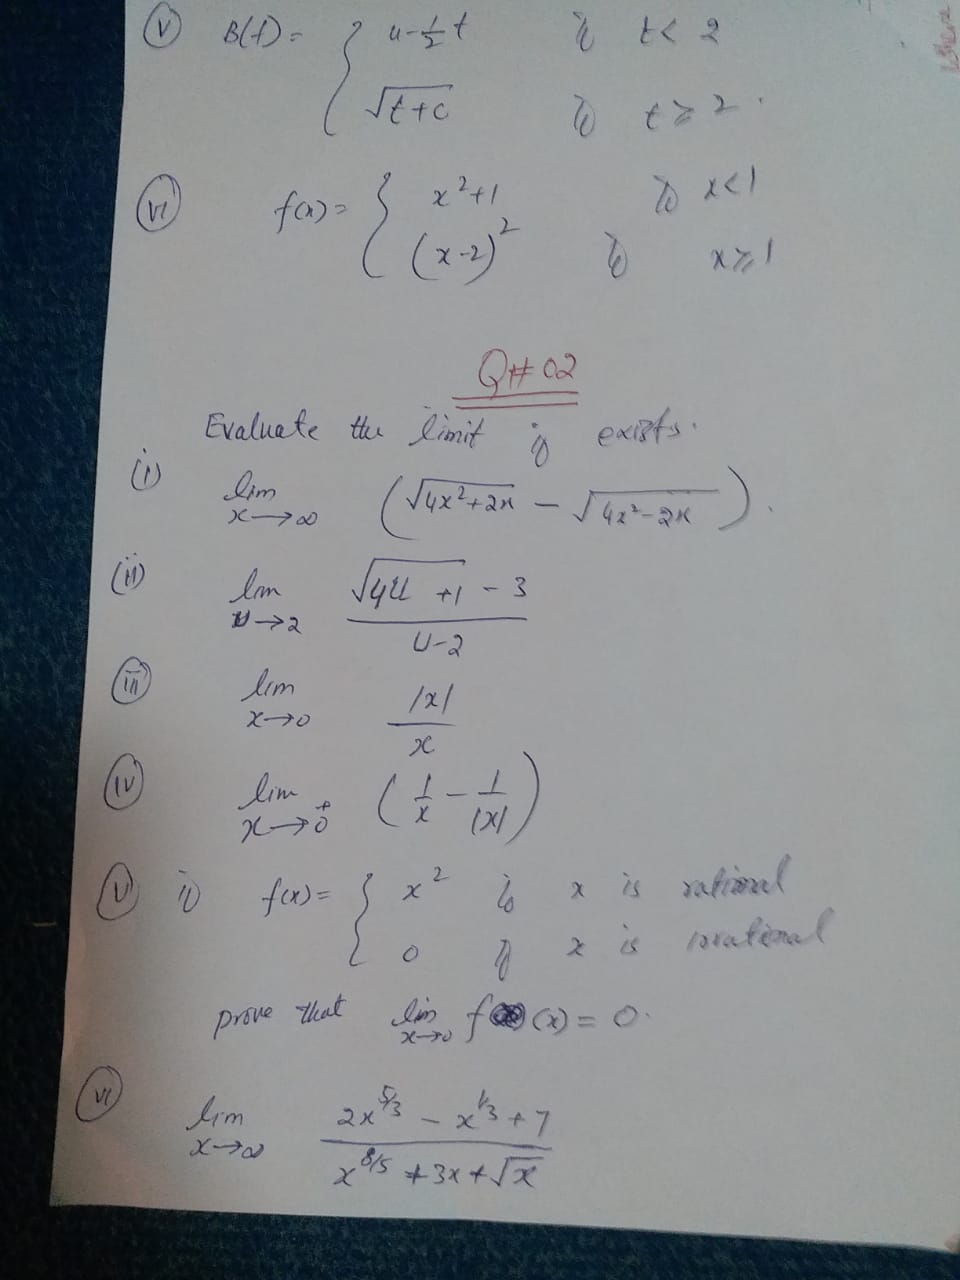 (v) B(t) = { 4 - 1/2 t if t < 2
√(t+c) if t ≥ 2.
(vi) f(x) = { x² + 1 if x < 1
(x-2)² if x ≥ 1
Q# 02
Evaluate the limit if exists.
(i) lim x→∞ (√(4x²+2x) - √(4x²-2x)).
(ii) lim u→2 (√(4u+1) - 3)/(u-2)
(iii) lim x→0 |x|/x
(iv) lim x→0⁺ (1/x - 1/|x|)
(v) if f(x) = { x² if x is rational
0 if x is irrational
prove that lim x→0 f(x) = 0.
(vi) lim x→∞ (2x^(5/3) - x^(1/3) + 7)/(x^(8/5) + 3x + √x)